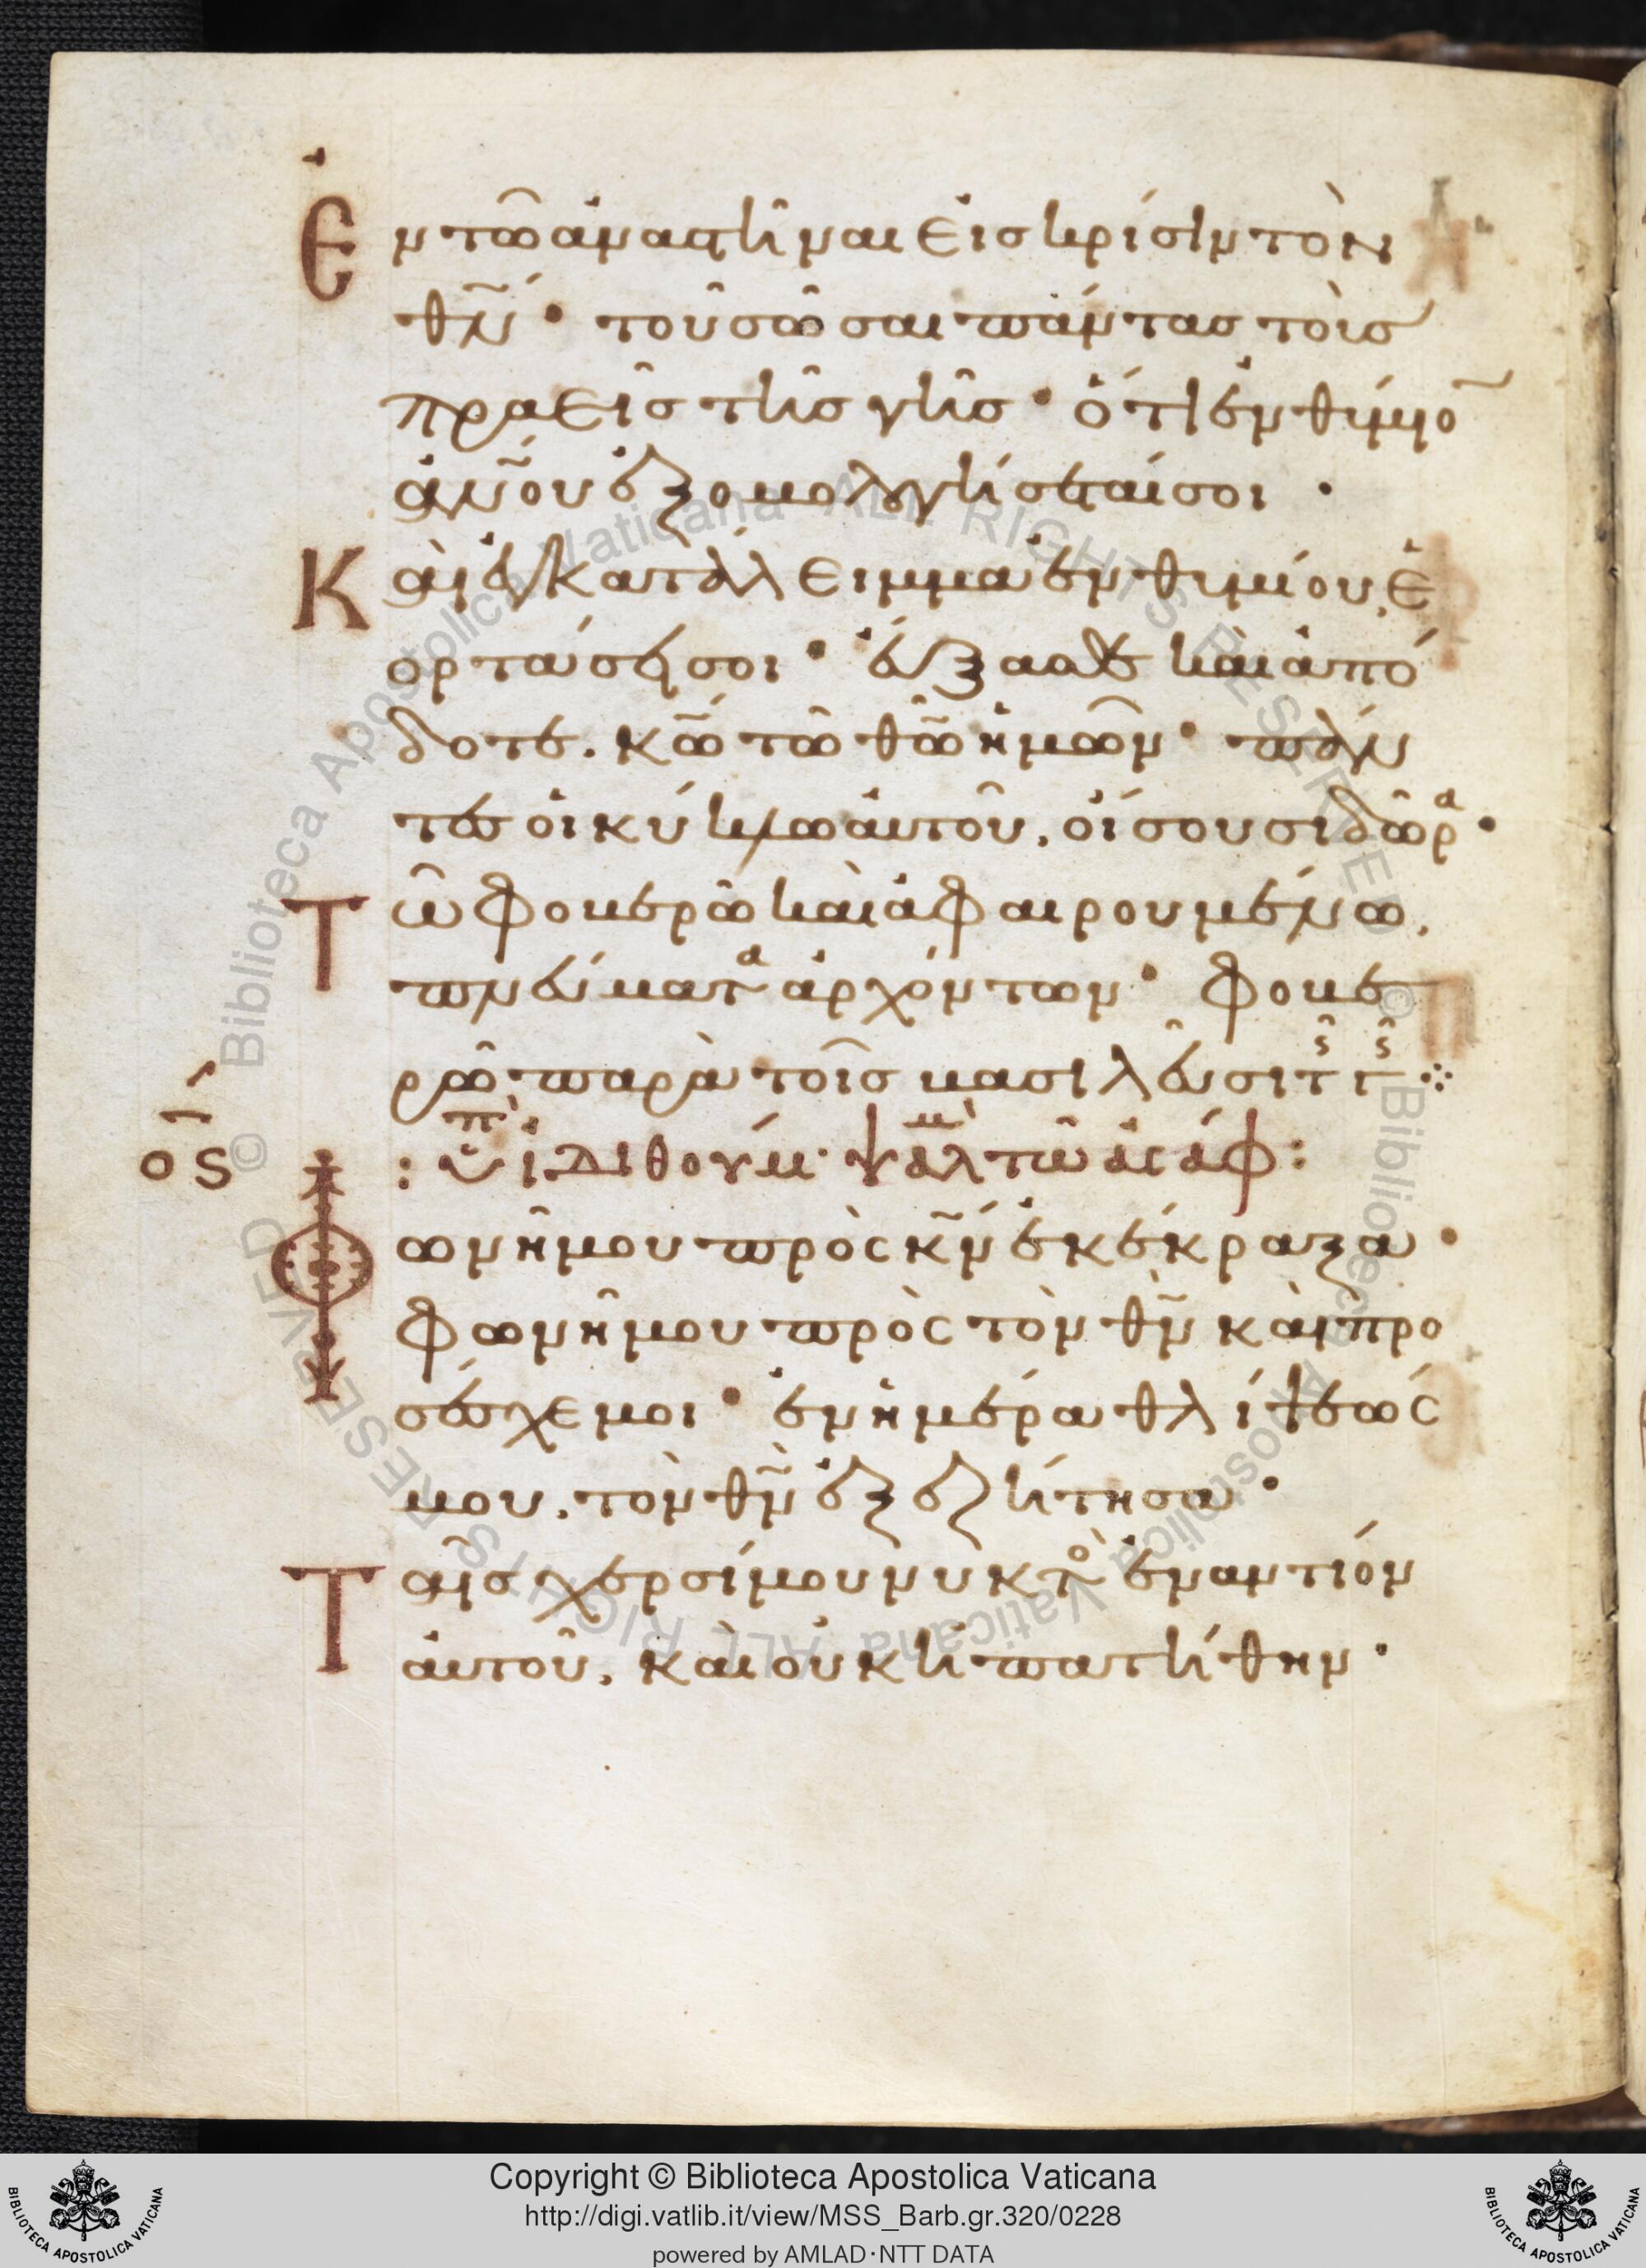 Ἐν τῶ ἀναστῆναι εἰς κρίσιν τὸν
θν̄· τοῦ σῶσαι πάντας τοὺς
πραεῖς τῆς γῆς· ὅτι ἐνθύμιο
ἀν̄ου ἐξομολογήσεταί σοι·
Καὶ ἐγκατάλειμμα ἐνθυμίου, ἑ
ορτάσει σοι· εὔξασθε καὶ ἀπό
δοτε. κω̄ τῶ θω̄ ἡμῶν· πάν
τες οἱ κύκλω αὐτοῦ, οἴσουσι δῶρα·
Τῶ φοβερῶ καὶ ἀφαιρουμένω,
πνεύματα ἀρχόντων· φοβε
ρῶ παρὰ τοῖς βασιλεῦσι τῆς γῆς ⁘
ος
: ὑπὲρ ἰδιθούμ· ψαλμὸς τῶ ἀσάφ :
Φωνῆ μου πρὸς κν̄ ἐκέκραξα·
φωνῆ μου πρὸς τὸν θν̄ καὶ προ
σέσχε μοι· ἐν ἡμέρα θλίψεώς
μου, τὸν θν̄ ἐξεζήτησα·
Ταῖς χερσί μου νυκτὸς ἐναντίον
αὐτοῦ, καὶ οὐκ ἠπατήθην·
© Biblioteca Apostolica Vaticana ALL RIGHTS RESERVED
© Biblioteca Apostolica Vaticana ALL RIGHTS RESERVED
Copyright © Biblioteca Apostolica Vaticana
http://digi.vatlib.it/view/MSS_Barb.gr.320/0228
powered by AMLAD·NTT DATA
BIBLIOTECA APOSTOLICA VATICANA
BIBLIOTECA APOSTOLICA VATICANA